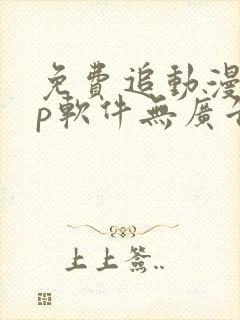 免費追動漫
p軟件無廣告
上上簽..